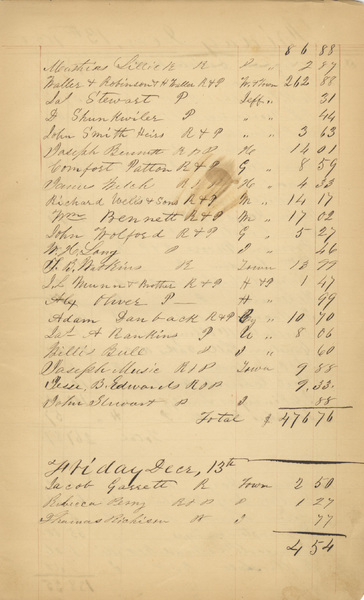 8 6 88
Lillick R 2 87
Waller & Robinson & H Waller R & P W. Town 262 88
Jas Stewart P Jeff. 31
D Shunkwiler P " 44
John Smith Heirs R & P " 3 63
Joseph Bennett R & P 14 01
Comfort Patton R & P G 8 59
James R & P 4 33
Richard Wells & Sons R & P M 14 17
Wm Bennett R & P M 17 02
John Wolford R & P G 5 27
W. H. Long P 46
Watkins R Town 13 77
J L Munn & Mother R & P H & P 1 47
Alex Oliver P H 99
Adam Danback R & P 10 70
Jas A Rankins P 8 06
Bull 60
Joseph Music R & P Town 9 88
Jesse B. Edwards R & P 9.33
John Stewart P 88
Total $ 476 76
Friday Decr, 13th
Jacob Garrett R Town 2 50
Rebecca R & P 1 27
Thomas 77
4 54